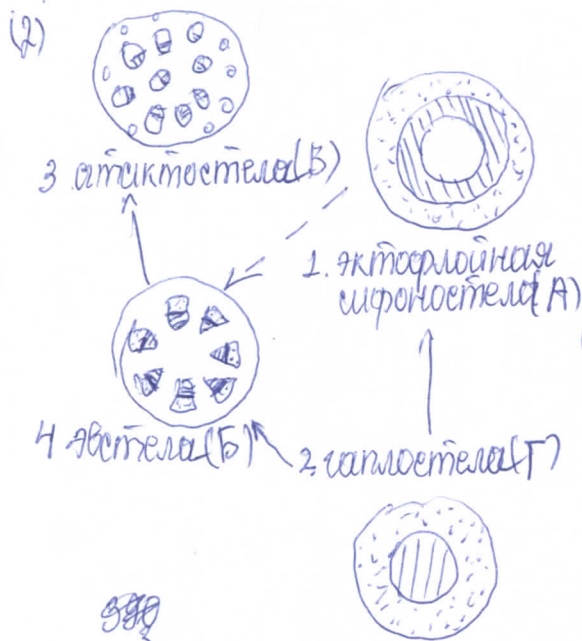 (2)
3 атактостела(В)
1. эктофлойная
сифоностела(А)
4 эвстела(Б)
2. гаплостела(Г)